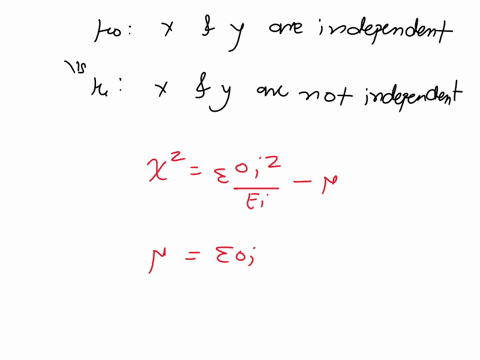 H0: x & y are independent
vs
H1: x & y are not independent
χ² = Σ Oi²/Ei − N
N = ΣOi